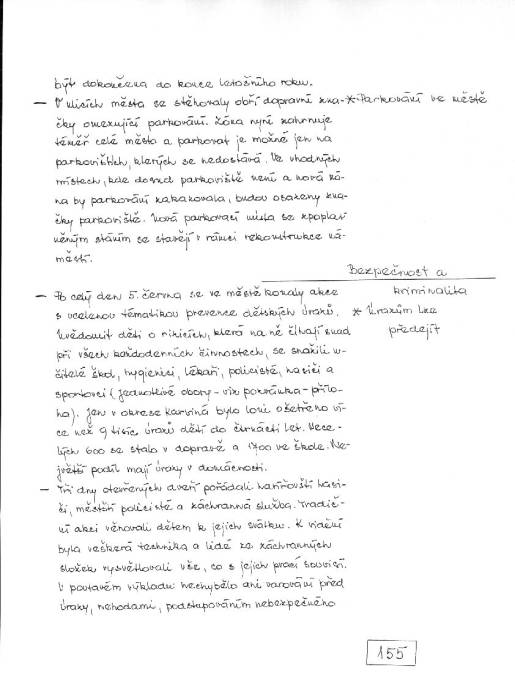 být dokončena do konce letošního roku.
— V ulicích města se stěhovaly obří dopravní zna- * Parkování ve městě
čky omezující parkování. Zóna nyní zahrnuje
téměř celé město a parkovat je možné jen na
parkovištích, kterých se nedostává. Ve vhodných
místech, kde dosud parkoviště není a nová zó-
na by parkování zakazovala, budou osazeny zna-
čky parkoviště. Nová parkovací místa se zpoplat
něným stáním se stavějí v rámci rekonstrukce ná-
městí.
Bezpečnost a
kriminalita
— Po celý den 5. června se ve městě konaly akce
s ucelenou tématikou prevence dětských úrazů. * Úrazům lze
předejít
Uvědomit děti o rizicích, která na ně číhají snad
při všech každodenních činnostech, se snažili u-
čitelé škol, hygienici, lékaři, policisté, hasiči a
sportovci (jednotlivé obory - viz pozvánka - přílo-
ha). Jen v okrese Karviná bylo loni ošetřeno ví
ce než 9 tisíc úrazů dětí do čtrnácti let. Více
než 600 se stalo v dopravě a 1700 ve škole. Nej-
větší podíl mají úrazy v domácnosti.
— Tři dny otevřených dveří pořádali havířovští hasi-
či, městští policisté a záchranná služba. Tradič-
ní akci věnovali dětem k jejich svátku. K vidění
byla veškerá technika a lidé ze záchranných
složek vysvětlovali vše, co s jejich prací souvisí.
V poutavém výkladu nechybělo ani varování před
úrazy, nehodami, podstupováním nebezpečného
155